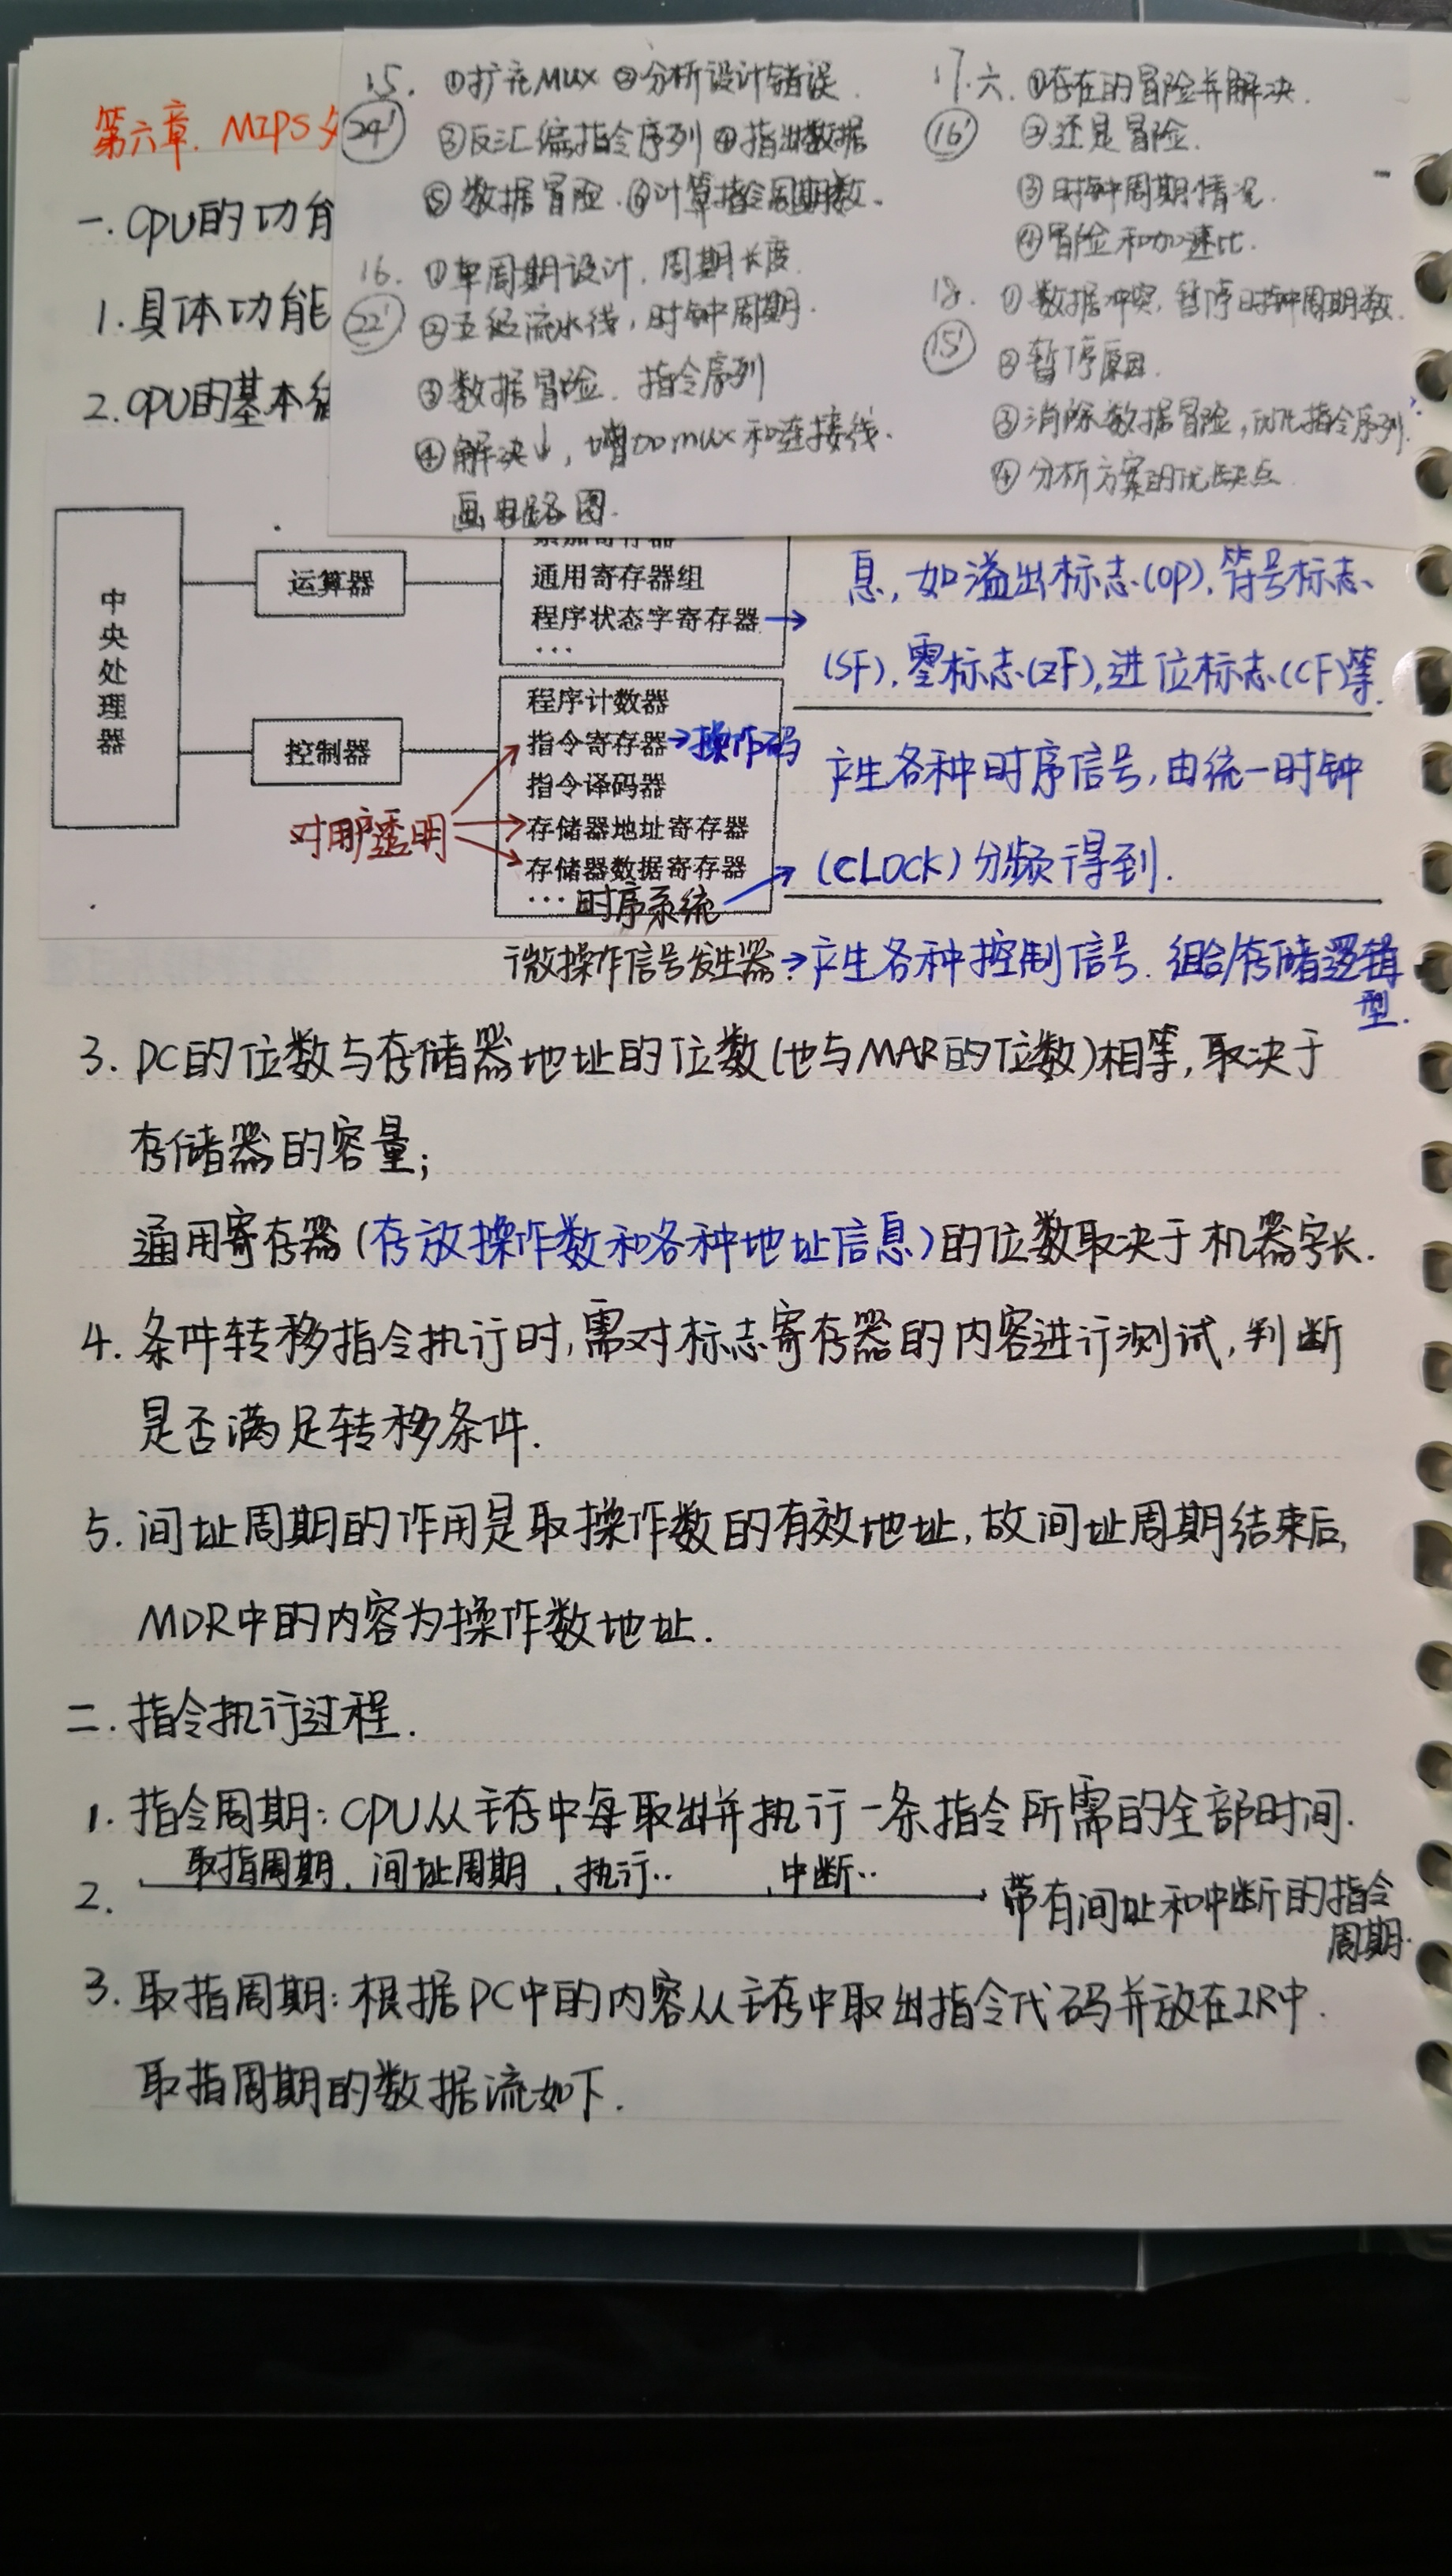 第六章. MIPS
一. CPU的功能
1. 具体功能
2. CPU的基本
15. ①扩充MUX ②分析设计错误.
24' ③反汇编指令序列 ④指出数据
⑤数据冒险. ⑥计算指令周期数.
16. ①单周期设计, 周期长度.
22' ②五级流水线, 时钟周期.
③数据冒险. 指令序列
④解决↓, 增加mux和连接线.
画电路图.
17. 六. ①存在的冒险并解决.
16' ②还是冒险.
③时钟周期情况.
④冒险和加速比.
18. ①数据冲突, 暂停时钟周期数.
15' ②暂停原因.
③消除数据冒险, 优化指令序列.
④分析方案的优缺点.
中央处理器
运算器
累加寄存器
通用寄存器组
程序状态字寄存器→
…
息, 如溢出标志(OP), 符号标志
(SF), 零标志(ZF), 进位标志(CF)等.
控制器
程序计数器
指令寄存器→操作码
指令译码器
存储器地址寄存器
存储器数据寄存器
… 时序系统
对用户透明
产生各种时序信号, 由统一时钟
(CLOCK)分频得到.
微操作信号发生器→产生各种控制信号. 组合/存储逻辑
型.
3. PC的位数与存储器地址的位数(也与MAR的位数)相等, 取决于
存储器的容量;
通用寄存器(存放操作数和各种地址信息)的位数取决于机器字长.
4. 条件转移指令执行时, 需对标志寄存器的内容进行测试, 判断
是否满足转移条件.
5. 间址周期的作用是取操作数的有效地址, 故间址周期结束后,
MDR中的内容为操作数地址.
二. 指令执行过程.
1. 指令周期: CPU从主存中每取出并执行一条指令所需的全部时间.
2. 取指周期 间址周期 执行.. 中断.. 带有间址和中断的指令
周期.
3. 取指周期: 根据PC中的内容从主存中取出指令代码并放在IR中.
取指周期的数据流如下.